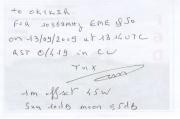 to OK1KIR
FOR 10368MHz EME QSO
on 13/09/2009 at 13:14UTC
RST O/419 in CW
TNX
1m offset 45W
Sun 10dB moon 0,5dB